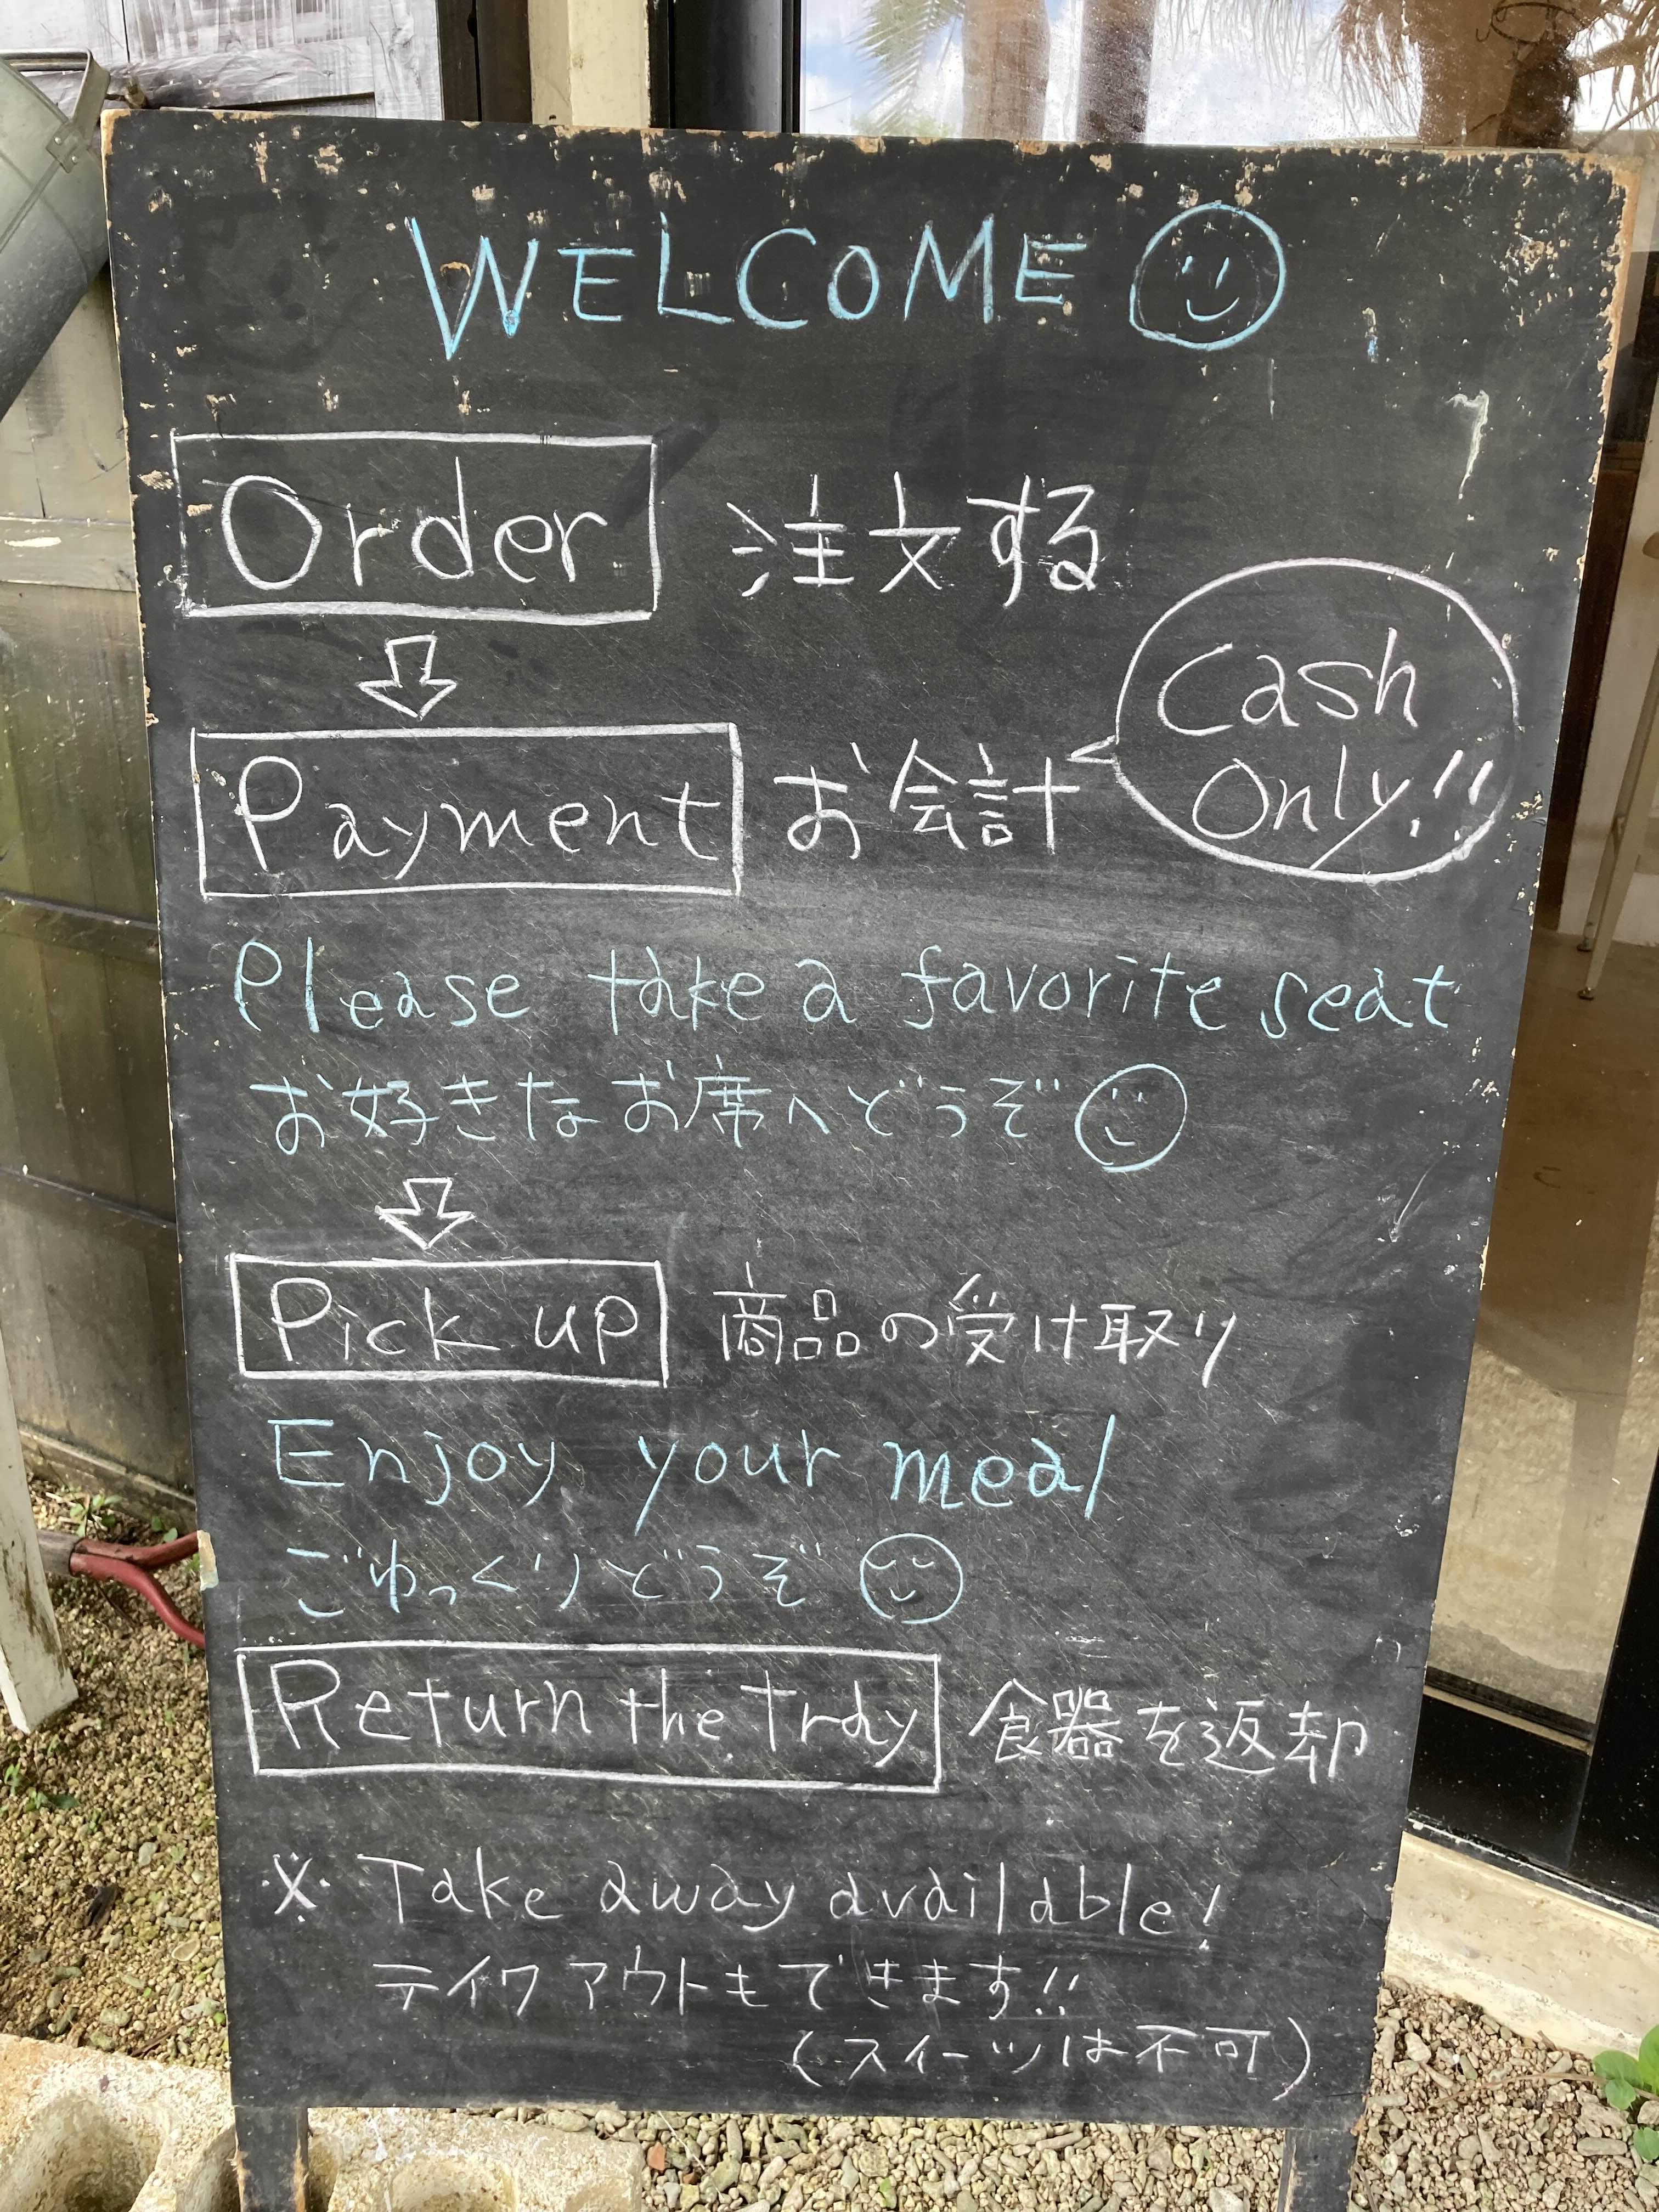 WELCOME
Order 注文する
Payment お会計
Cash
Only!!
Please take a favorite seat
お好きなお席へどうぞ
Pick up 商品の受け取り
Enjoy your meal
ごゆっくりどうぞ
Return the tray 食器を返却
※ Take away available!
テイクアウトもできます!!
(スイーツは不可)